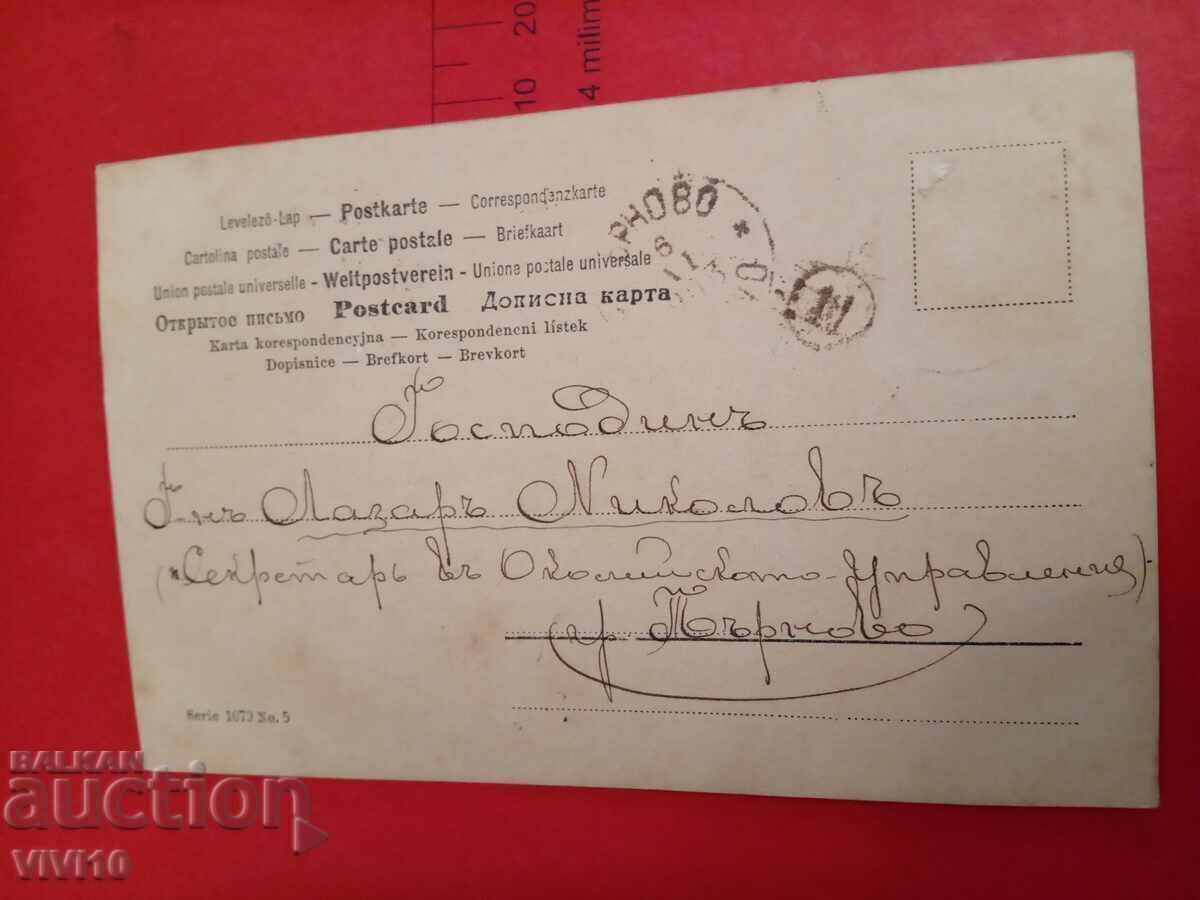 10 20
4 milim
Levelező-Lap — Postkarte — Correspondenzkarte
Cartolina postale — Carte postale — Briefkaart
Union postale universelle - Weltpostverein - Unione postale universale
Открытое письмо Postcard Дописна карта
Karta korespondencyjna — Korespondencni lístek
Dopisnice — Brefkort — Brevkort
РНОВО *
6
11
Господинъ
Г-нъ Лазаръ Николовъ
(Секретарь въ Околийското Управление)
гр Търново
Serie 1079 No. 5
BALKAN
auction
VIVI10